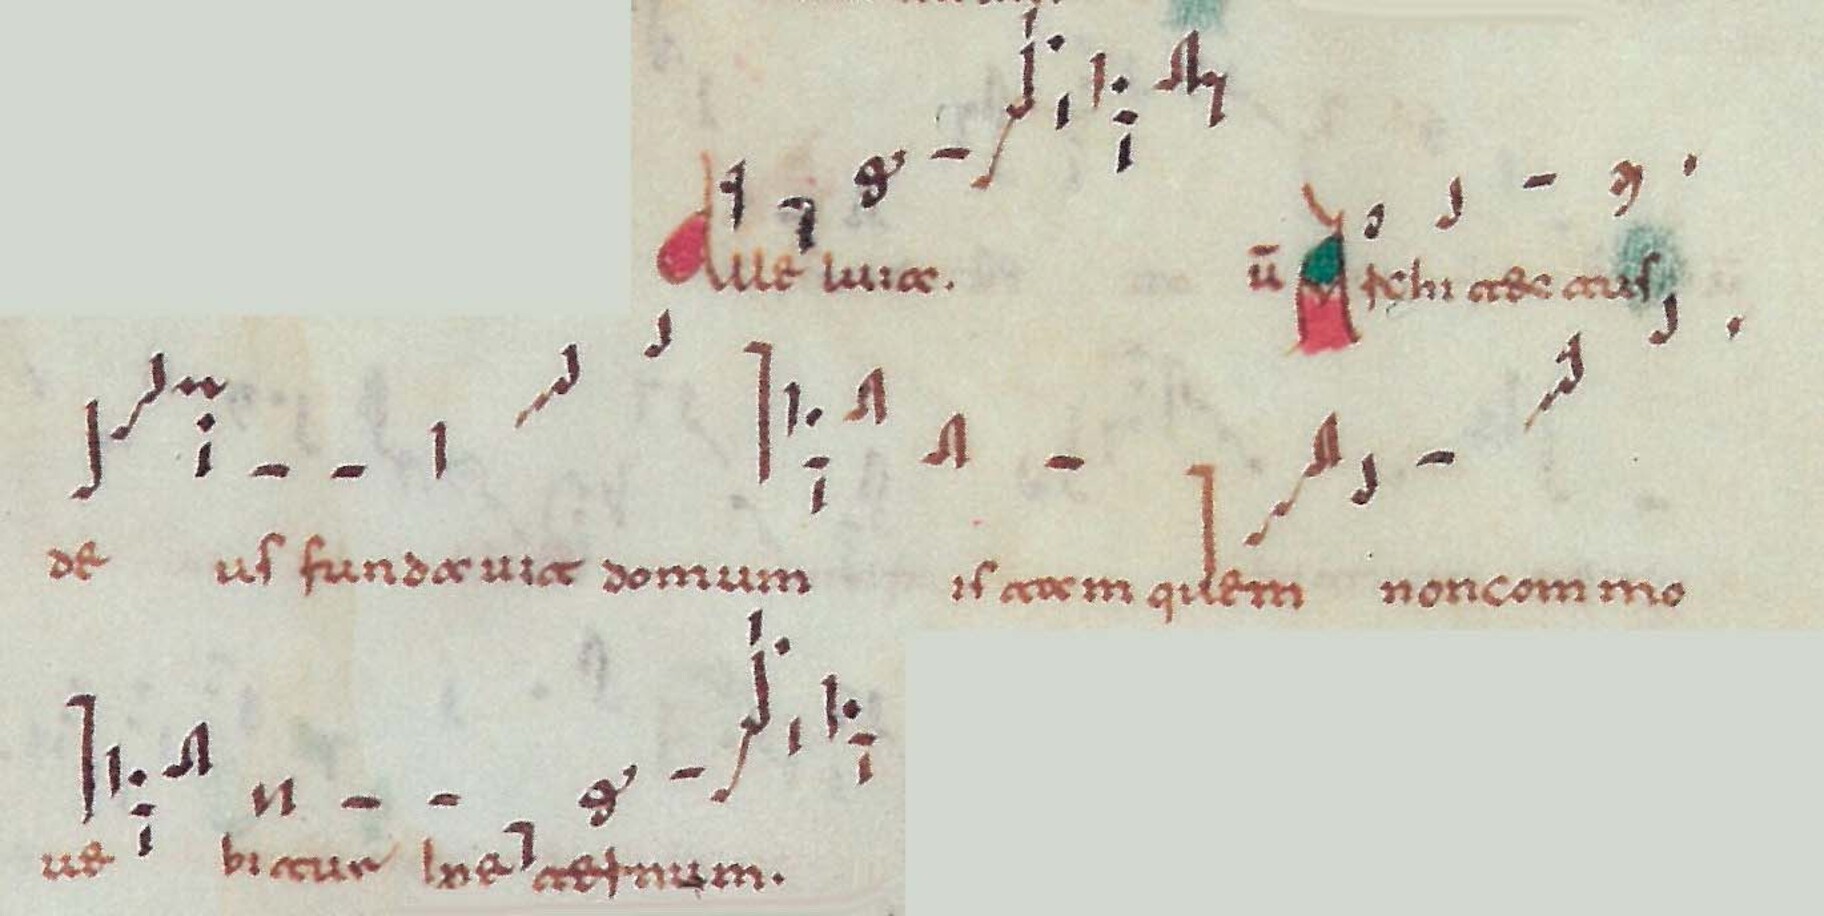 Alle luia. ū Archi tec tus
de us fundauit domum is tam quem non commo
ue bitur Ine ternum.